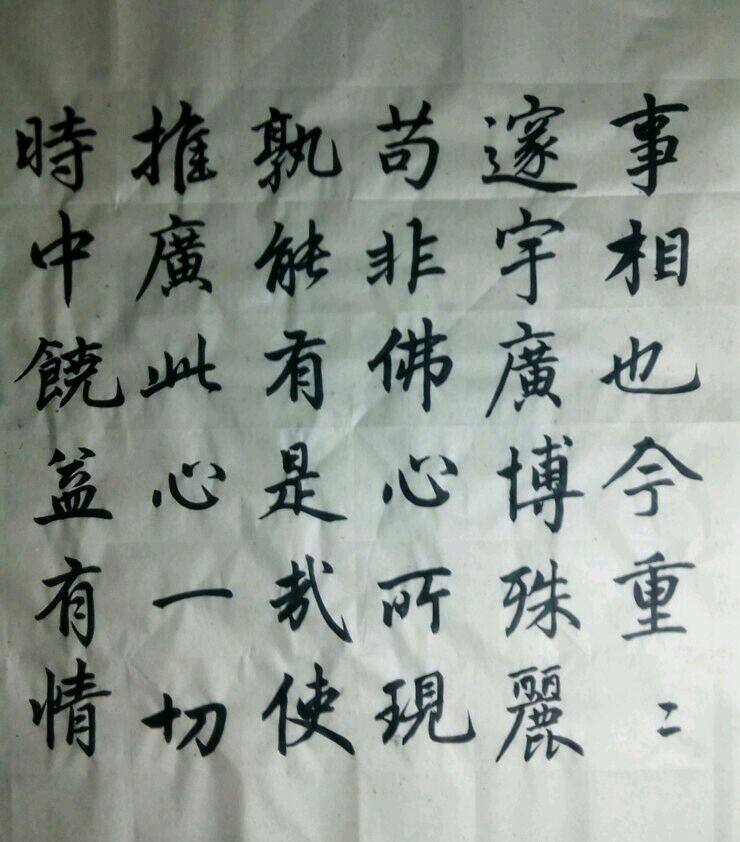 事相也今重〻
邃宇廣博殊麗
苟非佛心所現
孰能有是哉使
推廣此心一切
時中饒益有情